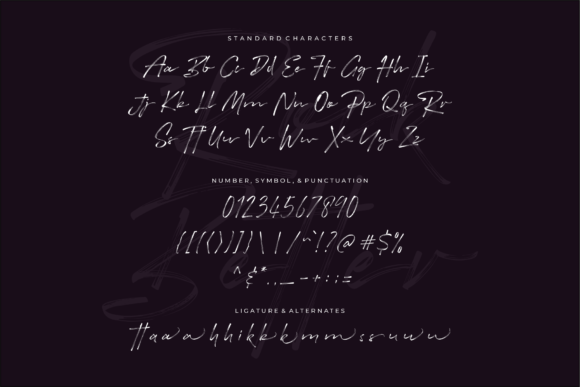 STANDARD CHARACTERS
Aa Bb Cc Dd Ee Ff Gg Hh Ii
Jj Kk Ll Mm Nn Oo Pp Qq Rr
Ss Tt Uu Vv Ww Xx Yy Zz
NUMBER, SYMBOL, & PUNCTUATION
01234567890
{[(())]}\ | / ~`!?@ #$%
^ & * . , _ - + : ; =
LIGATURE & ALTERNATES
tt a a h h i k k k m m s s u u w u